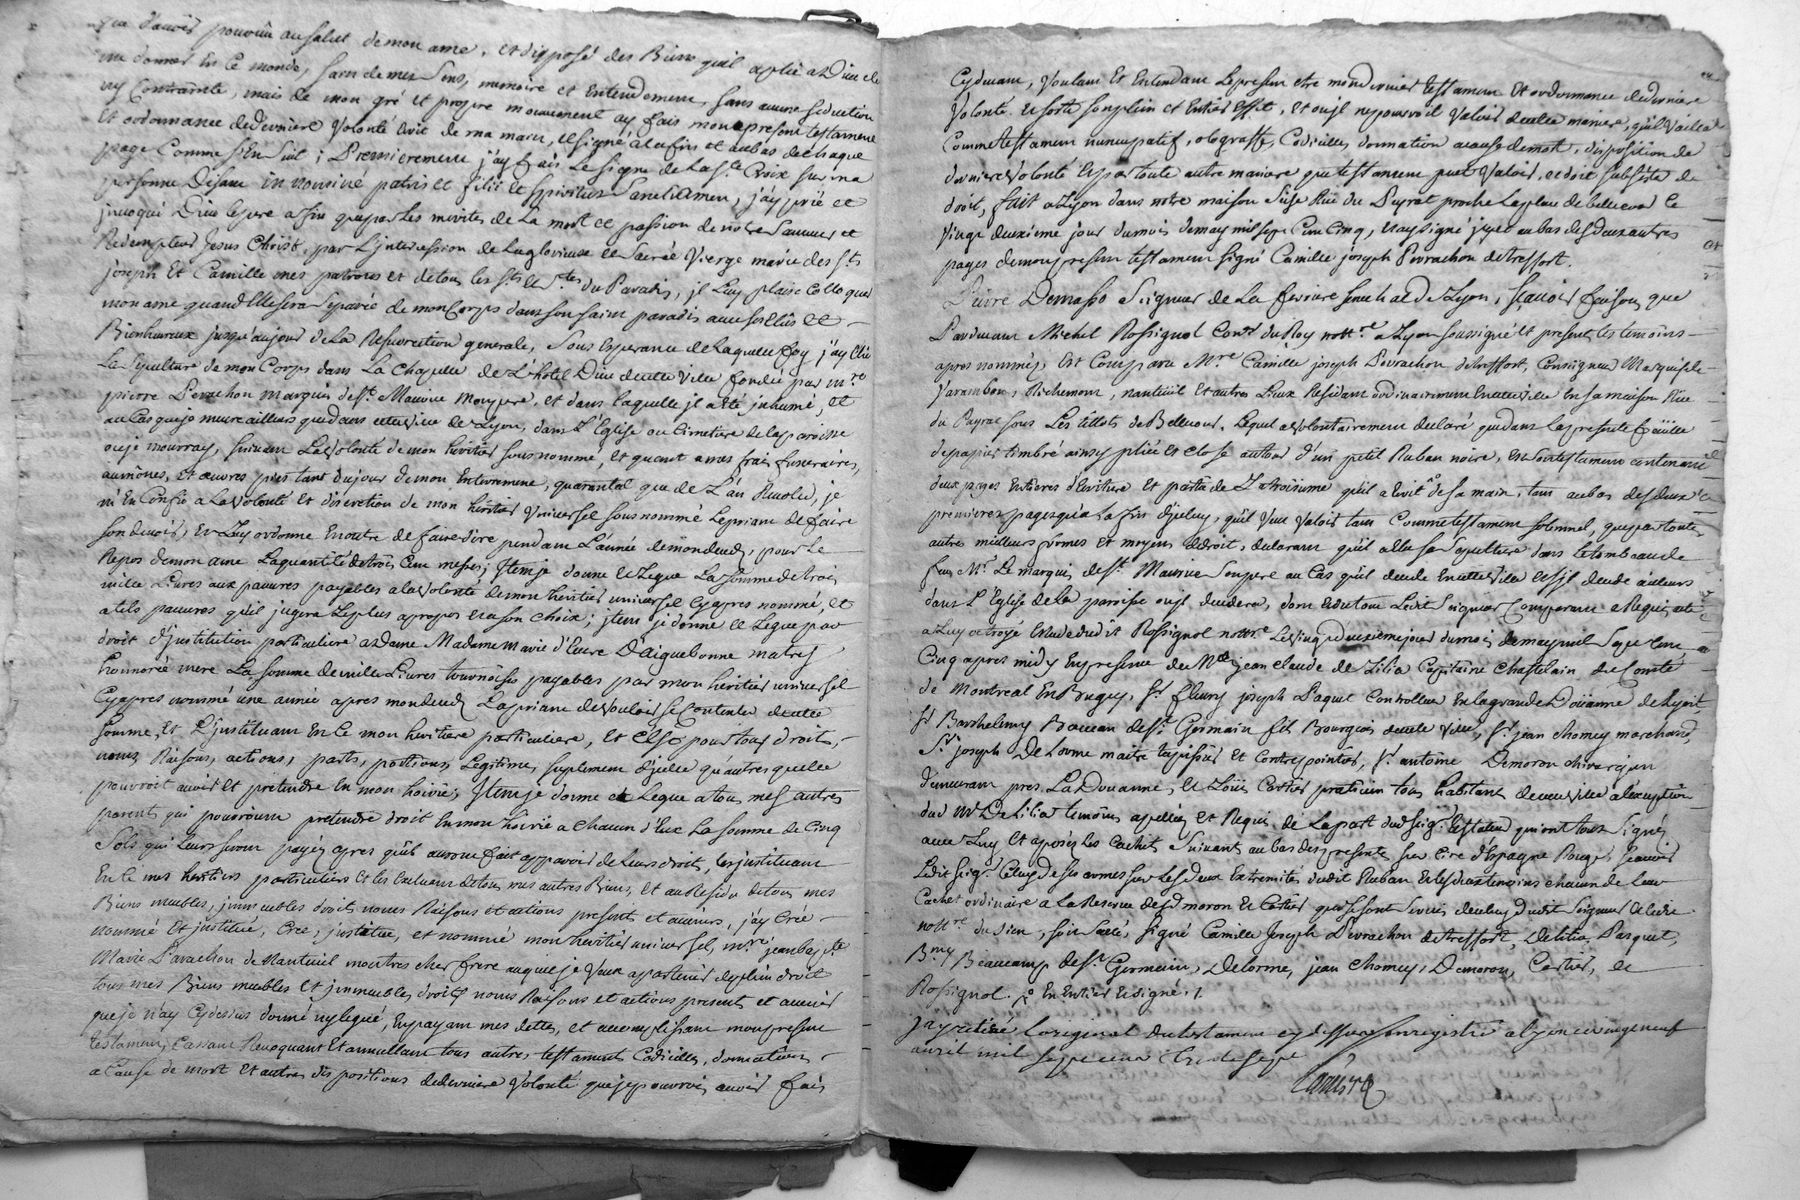 que d'avoir pourvu au salut de mon ame, et disposé des Biens quil a plû a Dieu de
me donner en ce monde, sain de mes sens, memoire et entendement, sans aucune seduction
ny contrainte, mais de mon gré et propre mouvement ay fait mon present testament
et ordonnance de derniere volonté écrit de ma main, et signé a la fin et au bas de chaque
page comme s'en suit ; Premierement j'ay fait le signe de la Ste Croix sur ma
personne disant in nomine patris et filii et spiritus sancti amen, j'ay prié et
jnvoqué Dieu le pere afin que par les merites de la mort et passion de notre Sauveur et
Redempteur Jesus Christ, par L'jntercession de la glorieuse et Sacrée Vierge marie des Sts
joseph Et Camille mes patrons et de tous les Sts et Stes du Paradis, jl luy plaise colloquer
mon ame quand Elle sera separée de mon Corps dans son saint paradis avec ses Elûs et
Bienheureux jusqu'au jour de La Resurrection generale, Sous esperance de laquelle foy j'ay Elû
La sepulture de mon Corps dans La Chapelle de L'hôtel Dieu de cette Ville fondée par mre
pierre Perrachon marquis de St Maurice mon pere, et dans laquelle jl a été jnhumé, et
au Cas que je meure ailleurs que dans cette ville de Lyon, dans L'Eglise ou Cimetiere de la paroisse
où je mourray, suivant La Volonté de mon heritier sous nommé, et quant a mes frais funeraires,
aumônes, et œuvres pies tant du jour de mon Enterrement, quarantal que de L'an Revolu, je
m'En Confie a La Volonté et discretion de mon heritier Universel sous nommé Le priant de faire
son devoir, Et Luy ordonne En outre de faire dire pendant L'année de mon deceds, pour Le
Repos de mon ame La quantité de trois Cent messes; jtem je donne et Legue La somme de trois
mille Livres aux pauvres payables a la volonté de mon heritier universel Cy apres nommé, et
a tels pauvres qu'il jugera Le plus apropos et a son choix ; jtem je donne et Legue par
droit d'jnstitution particuliere a Dame Madame marie d'Eure D'aiguebonne ma tres
honnorée mere La somme de mille Livres tournoises payables par mon heritier universel
Cy apres nommé une année apres mon deceds La priant de vouloir se Contenter de cette
somme, Et L'jnstituant En Ce mon heritiere particuliere, et Ce pour tous droits,
noms, Raisons, actions, parts, portions, Legitime, suplement d'jcelle qu'autres quelle
pourroit avoir et pretendre En mon hoirie; jtem je donne et Legue a tous mes autres
parents qui pourroient pretendre droit En mon hoirie a chacun d'Eux La somme de Cinq
Sols qui Leurs seront payés apres qu'ils auront fait apparoir de leurs droits, les jnstituant
En Ce mes heritiers particuliers et les Excluant de tous mes autres Biens, et au Residu de tous mes
Biens meubles, jmmeubles droits noms Raisons et actions presents et avenirs, j'ay Créé
nommé Et jnstitué, Crée, jnstitue, et nomme mon heritier universel, mre jean Bapte
Marie Parachon de Nantuil mon tres cher frere auquel je Veux apartenir de plein droit
tous mes Biens meubles et jmmeubles, droits noms Raisons et actions presents et avenir
que je n'ay Cy dessus donné ny legué, En payant mes dettes, et accomplissant mon present
testament, Cassant Revoquant Et annullant tous autres testaments Codicilles, donnations
a Cause de mort Et autres dispositions de derniere Volonté que je pourrois avoir fait
Cy devant, Voulant Et Entendant le present etre mon dernier testament Et ordonnance de derniere
Volonté et sorte son plein et Entier Effet, et ou jl ne pouvroit Valoir de cette maniere, quil Vaille
Comme testament nuncupatif, olograffe, Codicilles, donnation a cause de mort, disposition de
derniere Volonté et par toute autre maniere que testament peut Valoir, et doit subsister de
droit, fait a Lyon dans notre maison Sise Rüe du Peyrat proche La place de bellecour le
Vingt deuxieme jour du mois de may mil sept Cent Cinq, et ay signé jcy et au bas des deux autres
pages de mon present testament signé Camille joseph Perrachon de treffort.
Pierre Demasso Seigneur de La ferriere senechal de Lyon, sçavoir faisons que
Pardevant Michel Rossignol Coner du Roy nottre a Lyon soussigné Et present les temoins
apres nommés, est Comparu Mre Camille joseph Perrachon de treffort, Conseigneur Marquis de
Varambon, Richemont, nantüil et autres Lieux Residant ordinairement En cette Ville En sa maison Rüe
du Peyrat sous Les tillots de Bellecour. Lequel a volontairement declaré que dans La presente feüille
de papier timbré ainsy pliée et close autour d'un petit Ruban noire, est son testament contenant
deux pages Entieres d'Ecriture et partie de La troisieme qu'il a Ecrit de sa main, tant au bas des deux
premieres pages qu'a La fin d'jcelluy, qu'il Veut Valoir tant Comme testament solemnel, que par toutes
autres meilleurs formes et moyens de droit, declarant qu'il a Elu sa sepulture dans le tombeau de
feu Mr Le marquis de St Maurice son pere au Cas qu'il decede En cette Ville et s'jl decede ailleurs
dans L'Eglise de La paroisse ou jl decedera, dont et du tout Ledit Seigneur Comparant a Requis acte
a Luy octroyé Et ledit Rossignol nottre Le Vingt deuxieme jour du mois de may mil Sept Cent
Cinq apres midy En presence de Me jean Claude de Lilia Capitaine Chastelain du Comté
de Montreal En Bugey, Sr fleury joseph Paquet Controlleur En la grande Doüanne de Lyon
Sr Barthelemy Beaucam de St Germain fils Bourgeois de cette Ville, Sr jean Chomey marchand,
Sr joseph Delorme maitre tapissier Et Contrepointier, Sr antoine Demoron chirurgien
demeurant pres La Doüanne, Et Loüis Cartier praticien tous habitants de cette Ville a lexception
dud Mr De Lilia temoins apellés Et Requis de La part dud Seigr Testateur qui ont tous Signés
avec Luy Et aposés les Cachets suivant au bas des presentes sur Cire d'Espagne Rouge, sçavoir
Ledit Seigr Celuy de ses armes sur Les deux Extremités dudit Ruban Et lesdits temoins chacun de leur
Cachet ordinaire a La Reserve desd moron Et Cartier qui se sont servis de celuy dudit Seigneur Et ledit
nottre du sien, soit scellé, signé Camille Joseph Perrachon de treffort, Delilia, Pasquet,
Bmy Beaucamp de St Germain, Delorme, jean Chomey, Demoron, Cartier, et
Rossignol. En Entier Et signé. /.
J'ay retiré Loriginal du testament cy dessus Enregistré a Lyon ce vingt neuf
avril mil sept cent dix sept